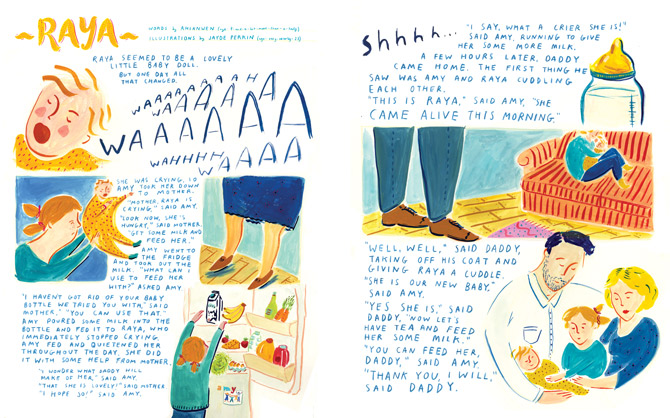 ~RAYA~
WORDS by AMIANWEN
ILLUSTRATIONS by JAYDE PERKIN
RAYA SEEMED TO BE A LOVELY
LITTLE BABY DOLL.
BUT ONE DAY ALL
THAT CHANGED.
WAAAAAAAAHA
WAAAAA
WAAAAAA
WAHHHH
WAAAA
SHE WAS CRYING, SO
AMY TOOK HER DOWN
TO MOTHER.
"MOTHER, RAYA IS
CRYING," SAID AMY.
"LOOK NOW, SHE'S
HUNGRY," SAID MOTHER.
"GET SOME MILK AND
FEED HER."
AMY WENT TO
THE FRIDGE
AND TOOK OUT THE
MILK. "WHAT CAN I
USE TO FEED HER
WITH?" ASKED AMY.
"I HAVEN'T GOT RID OF YOUR BABY
BOTTLE WE TRIED YOU WITH," SAID
MOTHER. "YOU CAN USE THAT."
AMY POURED SOME MILK INTO THE
BOTTLE AND FED IT TO RAYA, WHO
IMMEDIATELY STOPPED CRYING.
AMY FED AND QUIETENED HER
THROUGHOUT THE DAY. SHE DID
IT WITH SOME HELP FROM MOTHER.
"I WONDER WHAT DADDY WILL
MAKE OF HER," SAID AMY.
"THAT SHE IS LOVELY!" SAID MOTHER
"I HOPE SO!" SAID AMY.
Shhhh...
"I SAY, WHAT A CRIER SHE IS!"
SAID AMY, RUNNING TO GIVE
HER SOME MORE MILK.
A FEW HOURS LATER, DADDY
CAME HOME. THE FIRST THING HE
SAW WAS AMY AND RAYA CUDDLING
EACH OTHER.
"THIS IS RAYA," SAID AMY, "SHE
CAME ALIVE THIS MORNING."
"WELL, WELL," SAID DADDY,
TAKING OFF HIS COAT AND
GIVING RAYA A CUDDLE.
"SHE IS OUR NEW BABY,"
SAID AMY.
"YES SHE IS," SAID
DADDY, "NOW LET'S
HAVE TEA AND FEED
HER SOME MILK."
"YOU CAN FEED HER,
DADDY," SAID AMY.
"THANK YOU, I WILL,"
SAID DADDY.